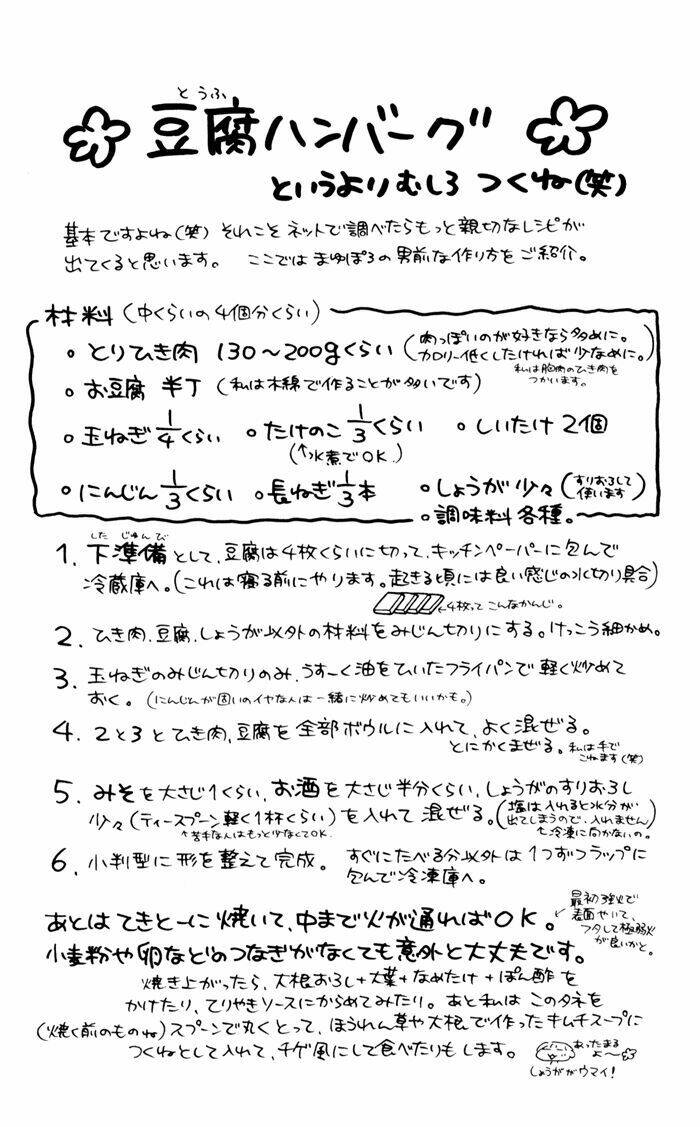 とうふ
豆腐ハンバーグ
というよりむしろ つくね(笑)
基本ですよね(笑) それこそ ネットで調べたらもっと親切なレシピが
出てくると思います。 ここでは まゆぽろの男前な作り方をご紹介。
材料(中くらいの4個分くらい)
・とりひき肉 130〜200gくらい(肉っぽいのが好きなら多めに。
カロリー低くしたければ少なめに。)
私は胸肉のひき肉を
つかいます。
・お豆腐 半丁(私は木綿で作ることが多いです)
・玉ねぎ 1/4 くらい ・たけのこ 1/3 くらい ・しいたけ 2個
(↑水煮でOK.)
・にんじん 1/3 くらい ・長ねぎ 1/3 本 ・しょうが 少々(すりおろして
使います)
・調味料 各種。
したじゅんび
1. 下準備として、豆腐は4枚くらいに切って、キッチンペーパーに包んで
冷蔵庫へ。(これは寝る前にやります。起きる頃には良い感じの水切り具合)
←4枚って こんなかんじ。
2. ひき肉、豆腐、しょうが以外の材料をみじん切りにする。けっこう細かめ。
3. 玉ねぎのみじん切りのみ、うすーく油をひいたフライパンで軽く炒めて
おく。(にんじんが固いのイヤな人は一緒に炒めてもいいかも。)
4. 2と3とひき肉、豆腐を全部ボウルに入れて、よく混ぜる。
とにかくまぜる。私は手で
こねます(笑)
5. みそを大さじ1くらい、お酒を大さじ半分くらい、しょうがのすりおろし
少々(ティースプーン軽く1杯くらい)を入れて 混ぜる。(塩は入れると水分が
出てしまうので、入れません)
↑苦手な人はもっと少なくてOK.
↑冷凍に向かないの。
6. 小判型に形を整えて完成。 すぐにたべる分以外は1つずつラップに
包んで冷凍庫へ。
あとはてきとーに焼いて、中まで火が通ればOK。
↙最初強火で
表面やいて、
フタして極弱火
が良いかと。
小麦粉や卵などのつなぎがなくても意外と大丈夫です。
焼き上がったら、大根おろし+大葉+なめたけ+ぽん酢を
かけたり、てりやきソースにからめてみたり。あと私はこのタネを
(焼く前のものね)スプーンで丸くとって、ほうれん草や大根で作ったキムチスープに
つくねとして入れて、チゲ風にして食べたりもします。
あったまる
よ〜
しょうががウマイ!